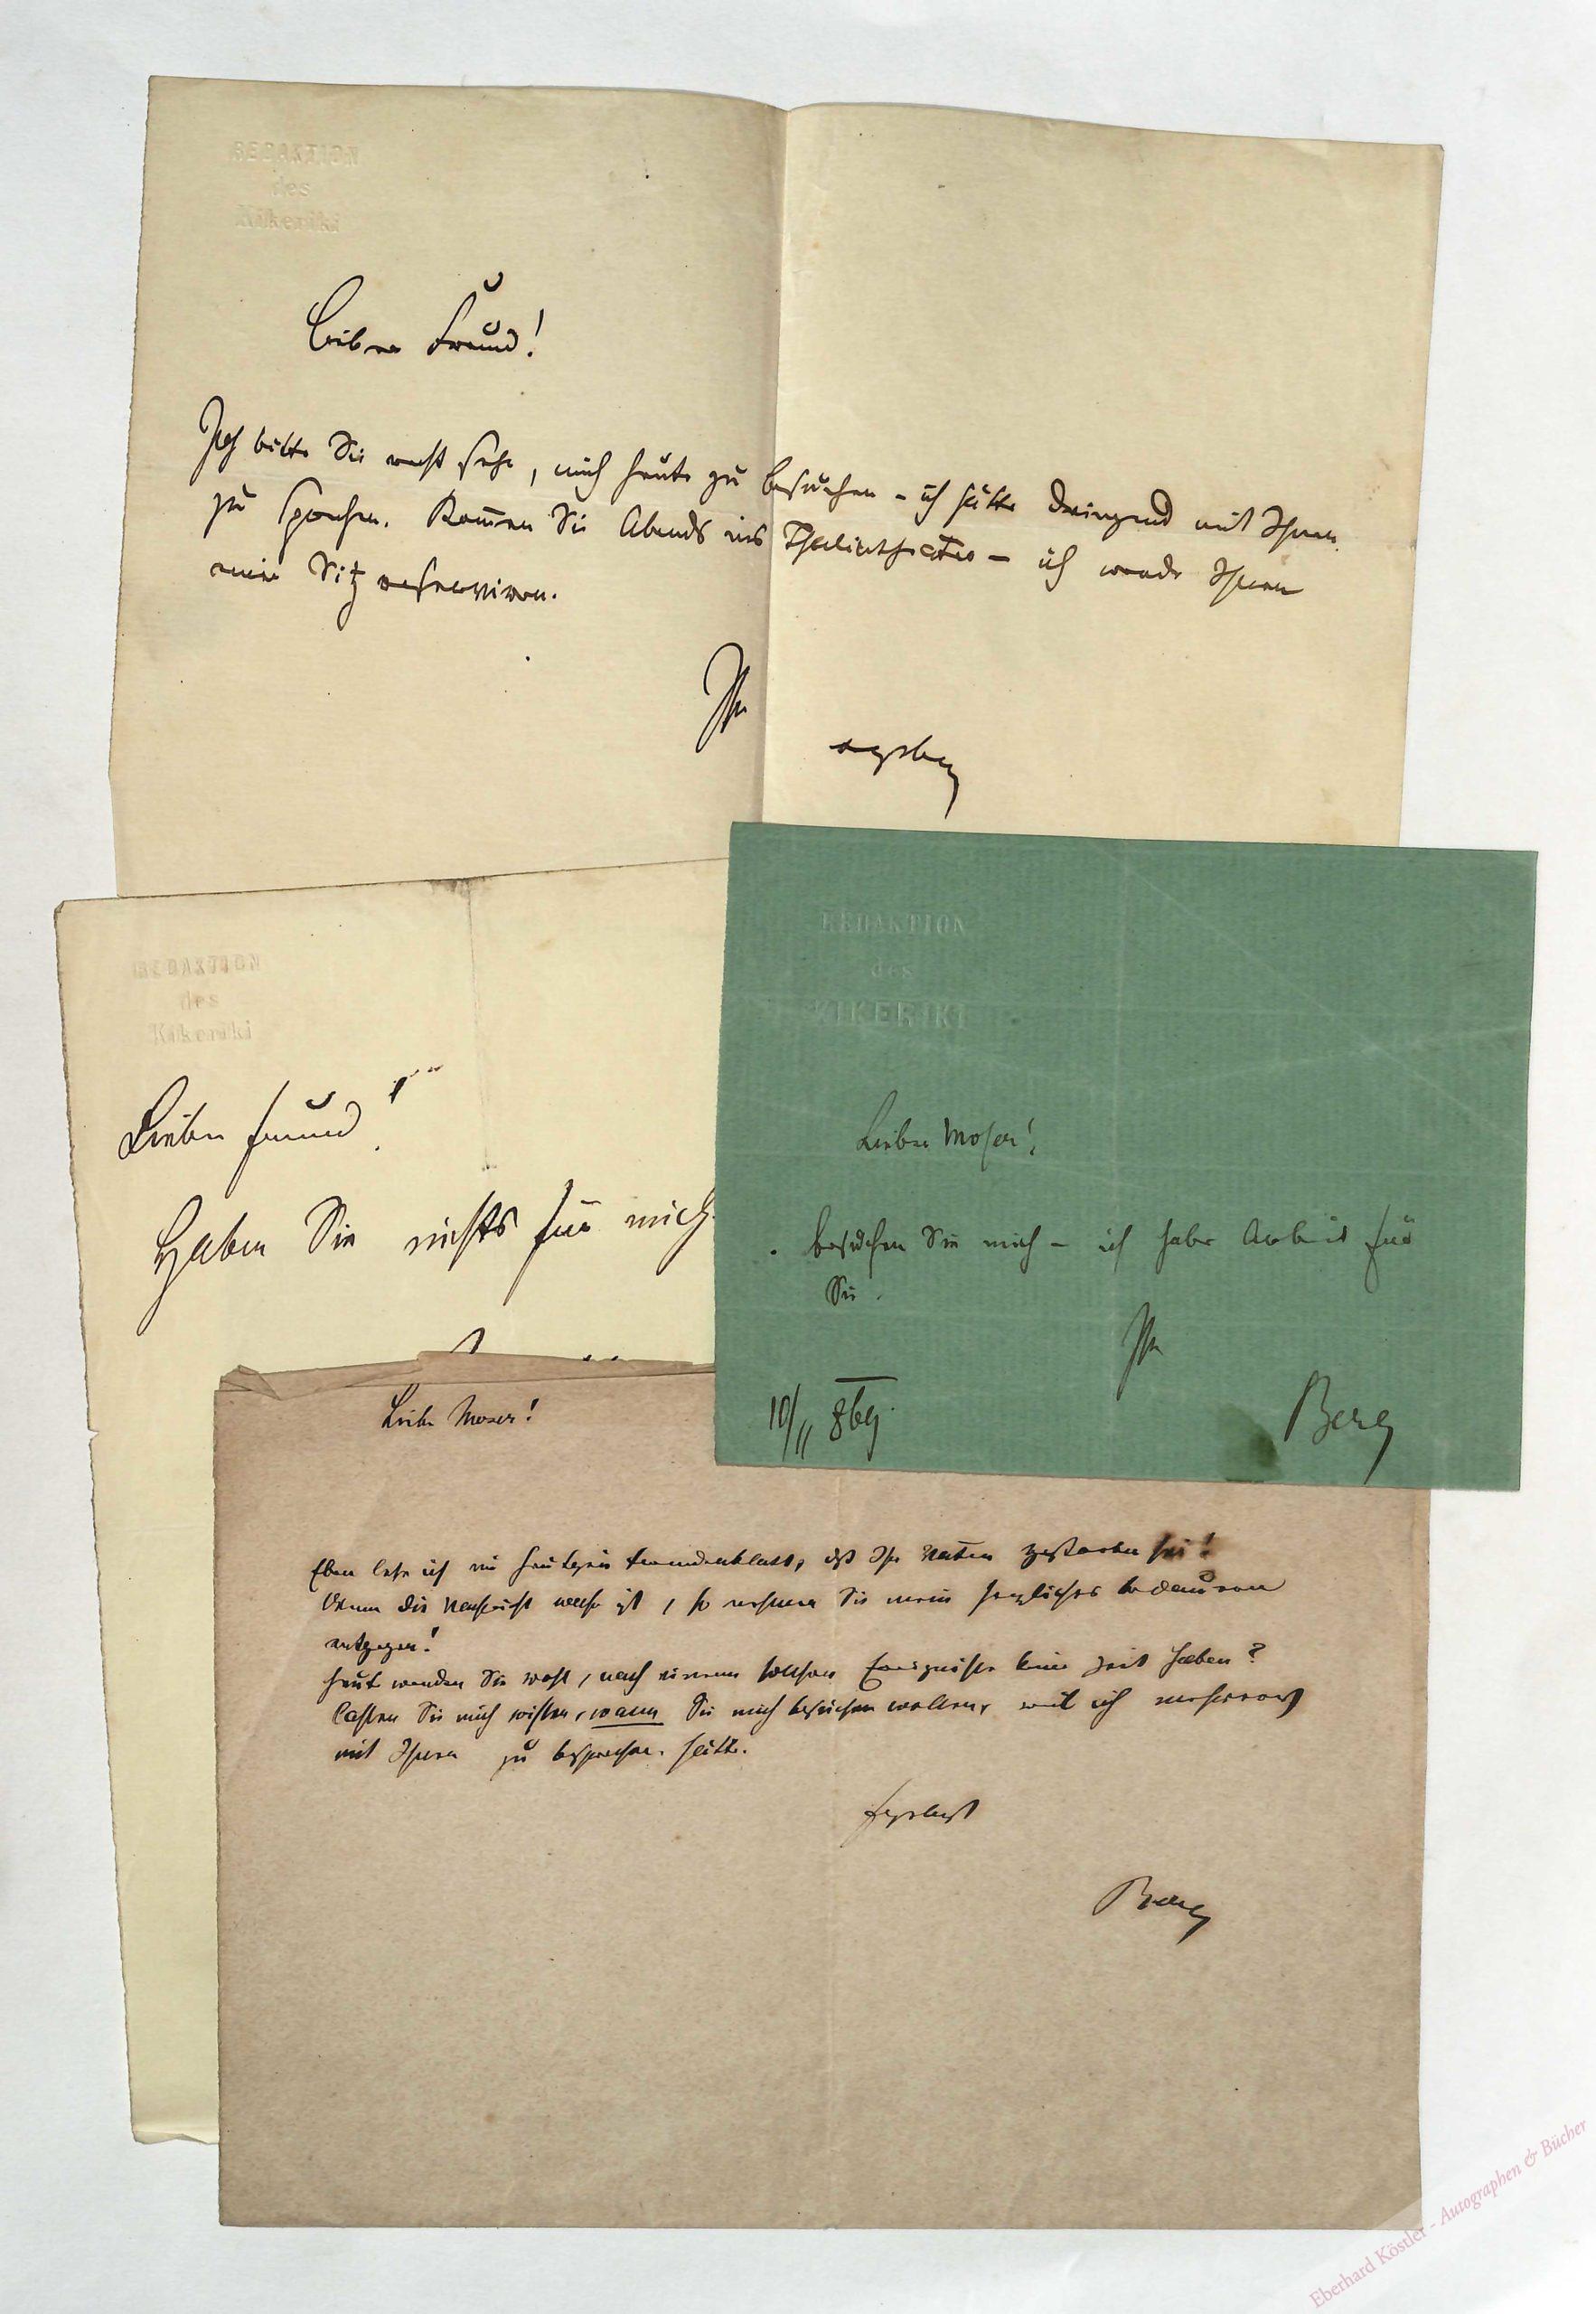 REDAKTION
des
Kikeriki
Lieber Freund!
Ich bitte Sie recht sehr, mich heute zu besuchen – ich hätte dringend mit Ihnen
zu sprechen. Kom̅en Sie Abends ins Thaliatheater – ich werde Ihnen
einen Sitz reserviren.
Ihr
REDAKTION
des
Kikeriki
Lieber Freund!
Haben Sie nichts für mich
REDAKTION
des
KIKERIKI
Lieber Moser!
besuchen Sie mich – ich habe Arbeit für
Sie.
Ihr
10/11 869.
Berg
Lieber Moser!
Eben lese ich im heutigen Fremdenblatt, daß Ihr Vater gestorben sei!
Wenn die Nachricht wahr ist, so nehmen Sie mein herzliches Bedauern
entgegen!
Heute werden Sie wohl, nach einem solchen Ereignisse keine Zeit haben?
Lassen Sie mich wissen, wann Sie mich besuchen wollen, weil ich mehreres
mit Ihnen zu besprechen hätte.
Berg
Eberhard Köstler - Autographen & Bücher